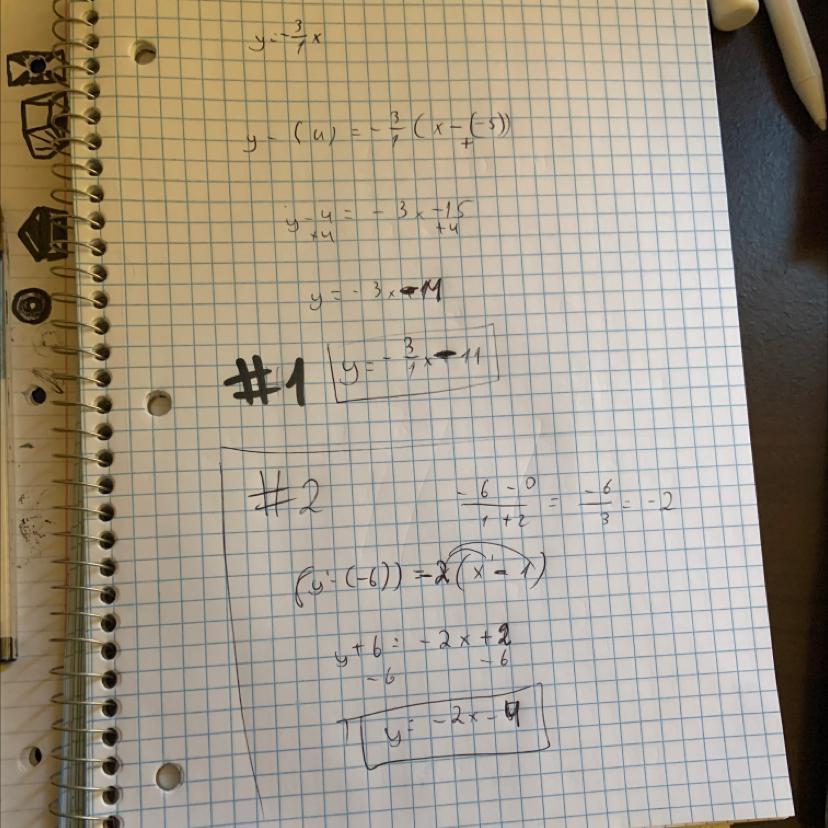 y=-3/1x
y-(4)=-3/1(x-(-5))
+
y-4=-3x-15
+4 +4
y=-3x-11
#1 y=-3/1x-11
#2 -6-0/1+2 = -6/3 = -2
(y-(-6))=-2(x-1)
y+6=-2x+2
-6 -6
y=-2x-4